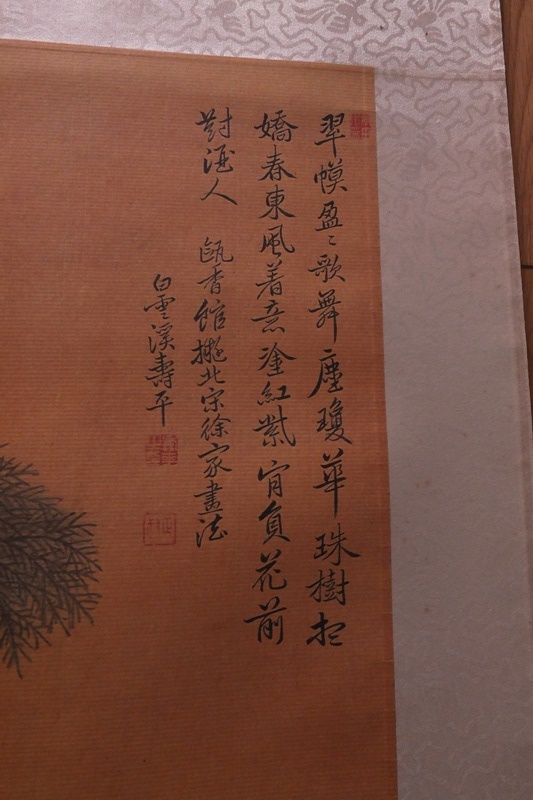 翆幙盈〻歌舞塵瓊華珠樹
嬌春東風着意塗紅紫肎負花前
對酒人 甌香館擬北宋徐家畫法
白雲溪壽平